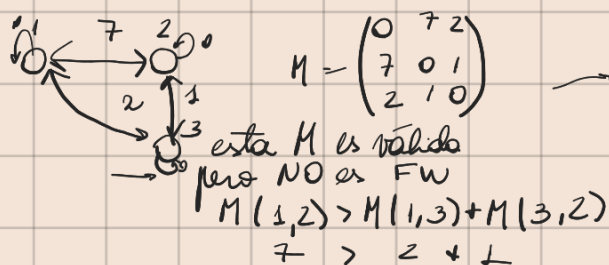 1 7 2 0
2 1
3
M = (0 7 2
7 0 1
2 1 0)
esta M es válida
pero NO es FW
M(1,2) > M(1,3) + M(3,2)
7 > 2 + 1